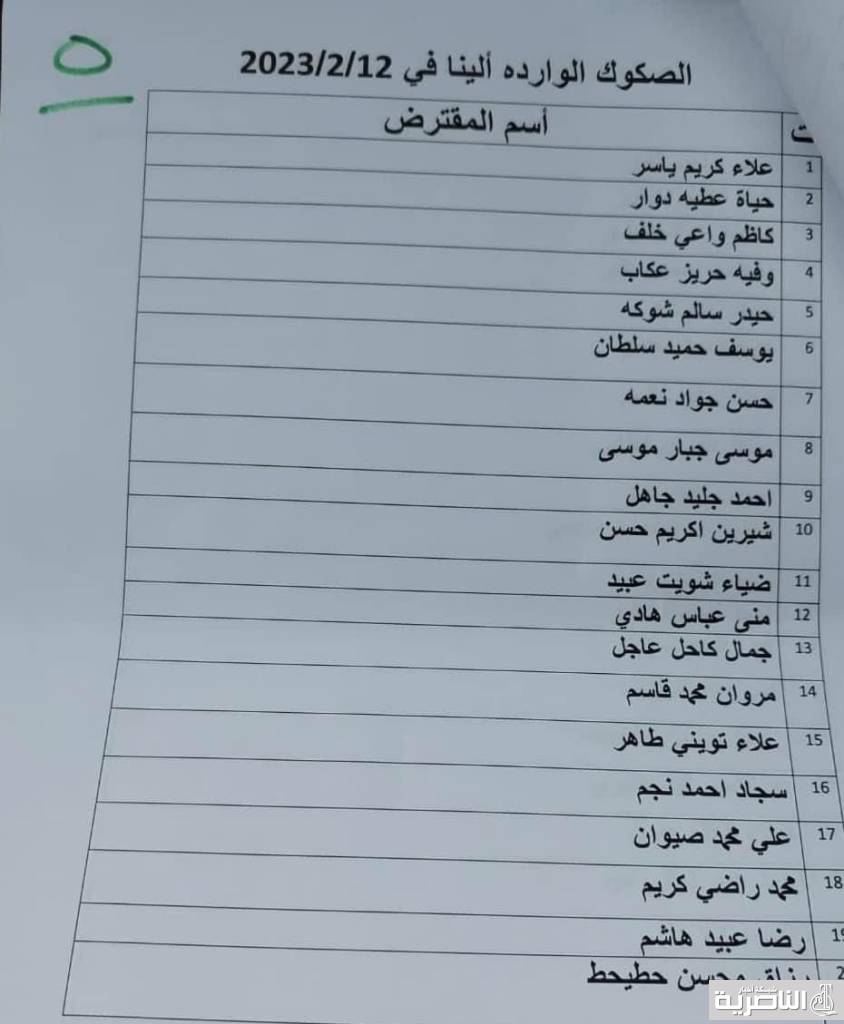 ٥
الصكوك الوارده ألينا في 2023/2/12
ت أسم المقترض
1 علاء كريم ياسر
2 حياة عطيه دوار
3 كاظم واعي خلف
4 وفيه حريز عكاب
5 حيدر سالم شوكه
6 يوسف حميد سلطان
7 حسن جواد نعمه
8 موسى جبار موسى
9 احمد جليد جاهل
10 شيرين اكريم حسن
11 ضياء شويت عبيد
12 منى عباس هادي
13 جمال كاحل عاجل
14 مروان محمد قاسم
15 علاء تويني طاهر
16 سجاد احمد نجم
17 علي محمد صيوان
18 محمد راضي كريم
19 رضا عبيد هاشم
2 رزاق محسن حطيحط
شبكة اخبار
الناصرية